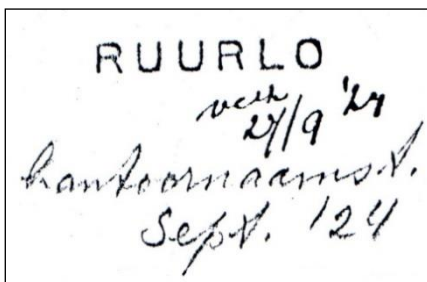 RUURLO
27/9 '24
kantoornaamst.
Sept. '24